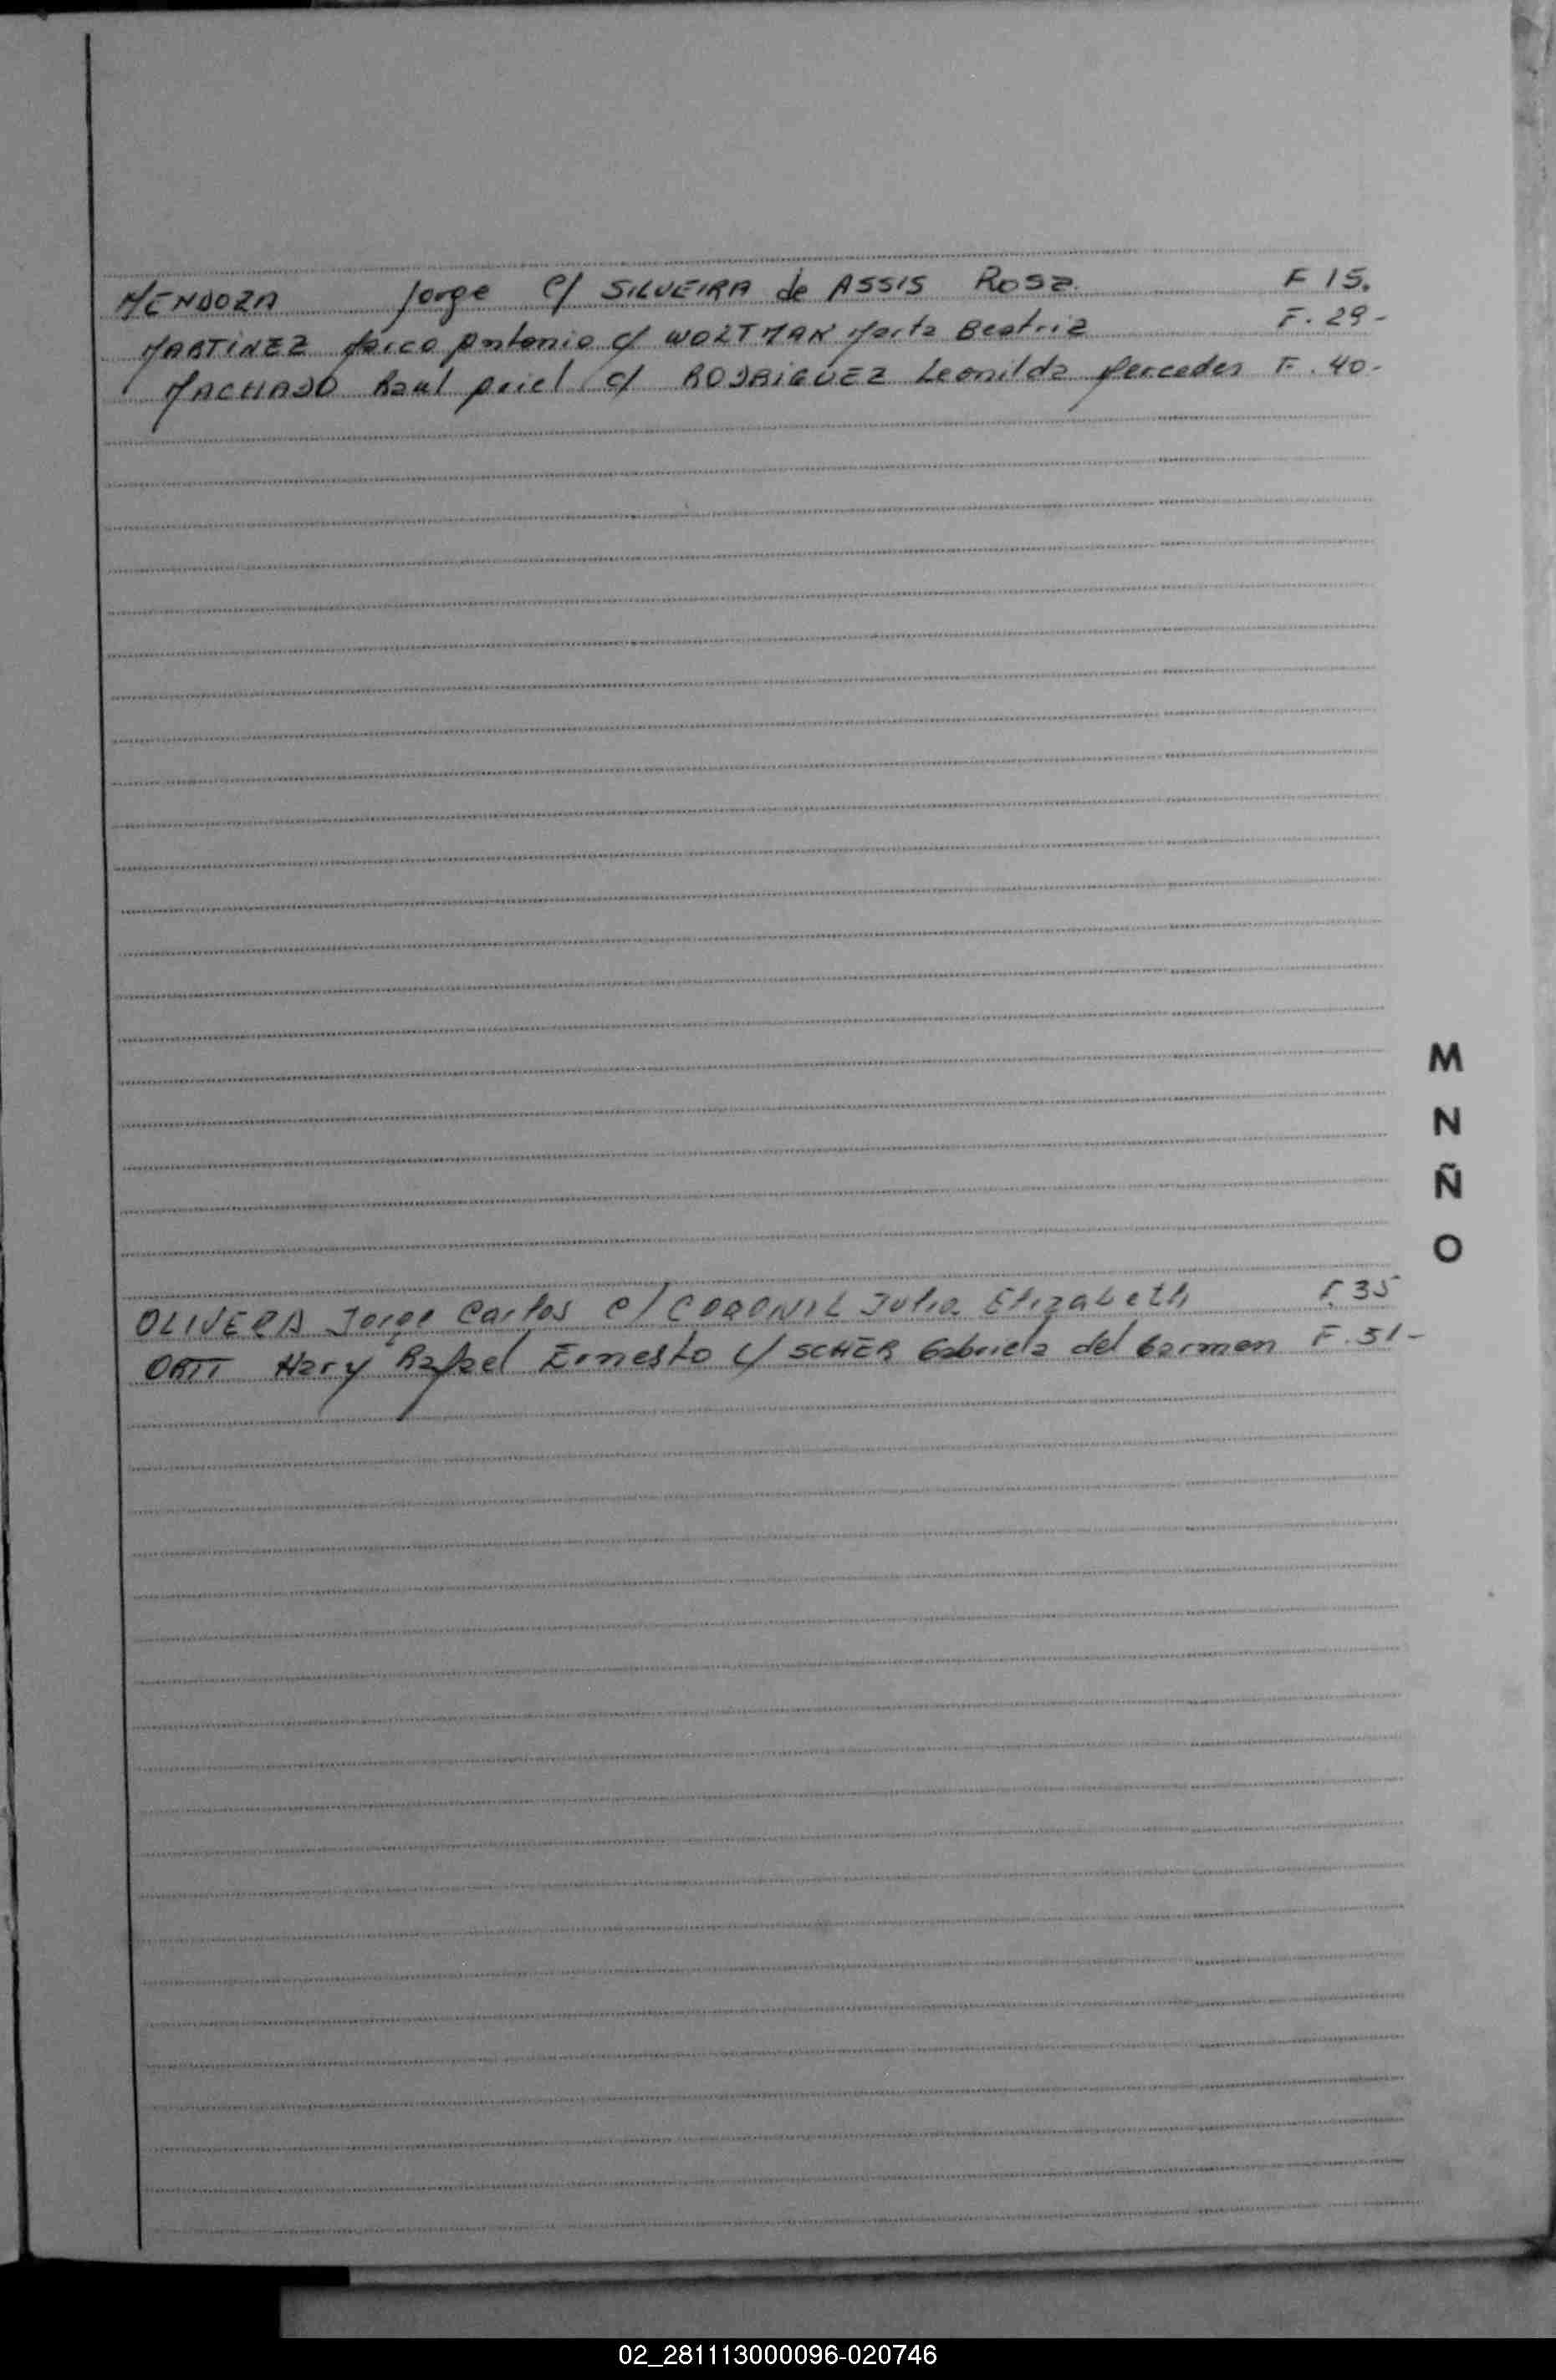 MENDOZA Jorge C/ SILVEIRA de ASSIS Rosa. F 15.
MARTINEZ Marco Antonio c/ WOLTMAN Marta Beatriz F. 29-
MACHADO Raul Ariel c/ RODRIGUEZ Leonilda Mercedes F. 40-
M
N
Ñ
O
OLIVERA Jorge Carlos c/ CORONIL Julia Elizabeth F 35
ORTT Hary Rafael Ernesto c/ SCHER Gabriela del Carmen F. 51-
02_281113000096-020746